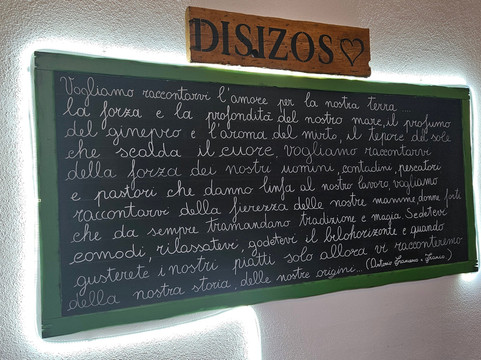 DISIZOS
Vogliamo raccontarvi l'amore per la nostra terra ....
la forza e la profondità del nostro mare, il profumo
del ginepro e l'aroma del mirto, il tepore del sole
che scalda il cuore, vogliamo raccontarvi
della forza dei nostri uomini, contadini, pescatori
e pastori che danno linfa al nostro lavoro, vogliamo
raccontarvi della fierezza delle nostre mamme, donne forti
che da sempre tramandano tradizione e magia. Sedetevi
comodi, rilassatevi, godetevi il belohorizonte e quando
gusterete i nostri piatti solo allora vi racconteremo
della nostra storia, delle nostre origini... (Antonio